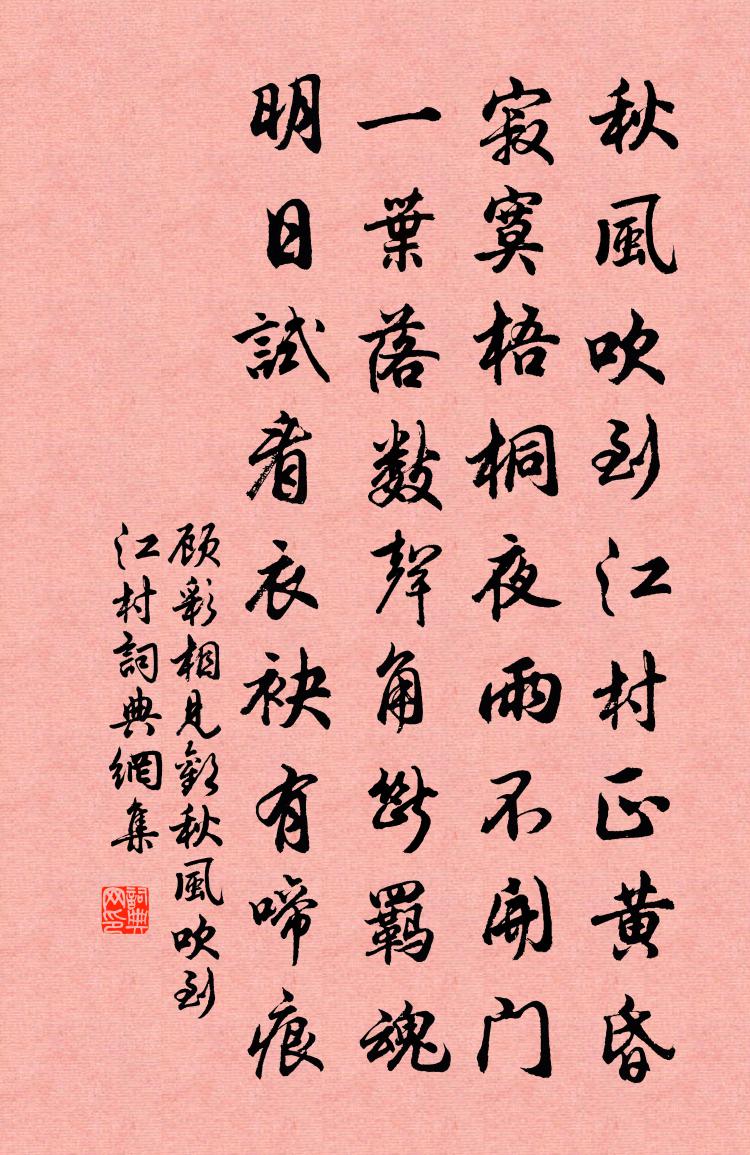 秋風吹到江村正黄昏
寂寞梧桐夜雨不開门
一葉落数聲角断羈魂
明日試看衣袂有啼痕
顾彩相見歡秋風吹到
江村詞典網集
詞典网印